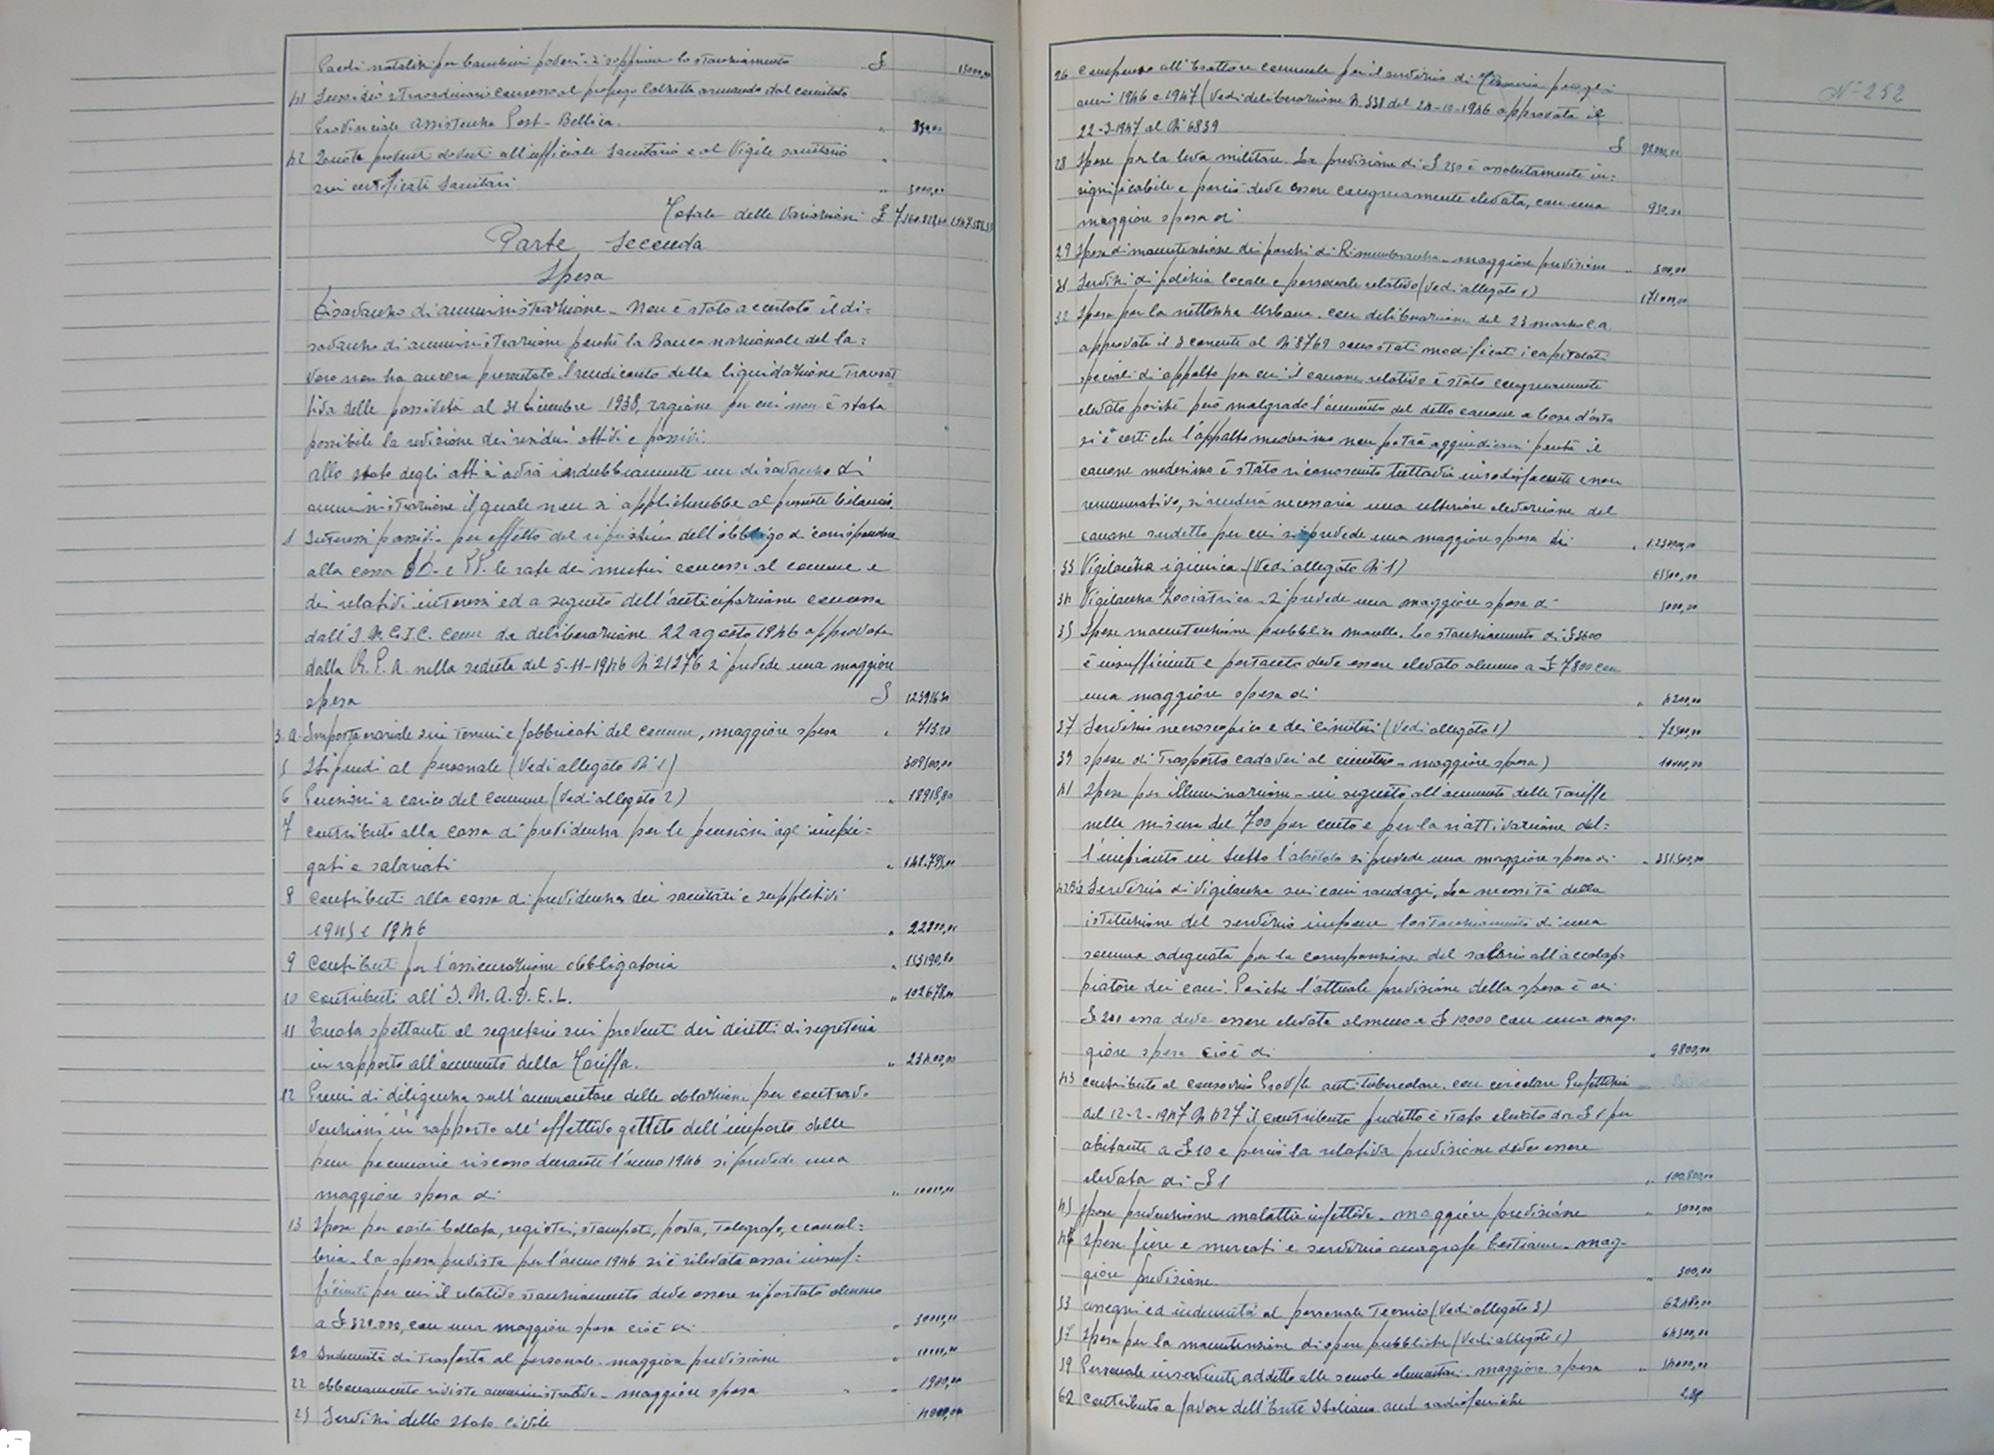 Pacchi natalizi per bambini poveri. si sopprime lo stanziamento £ 15000,00
41 Sussidio straordinario concesso al profugo Calzetta armando dal comitato
Provinciale Assistenza Post-Bellica. " 350,00
42 Quota proventi dovuti all'ufficiale Sanitario e al Vigile sanitario
sui certificati Sanitari " 5000,00
Totale delle Variazioni £
Parte Seconda
Spesa
Disavanzo di amministrazione - Non è stato accertato il di=
savanzo di amministrazione perché la Banca nazionale del la=
voro non ha ancora presentato il rendiconto della liquidazione transat
tiva delle passività al 31 Dicembre 1938, ragione per cui non è stata
possibile la revisione dei residui attivi e passivi.
allo stato degli atti si avrà indubbiamente un disavanzo di
amministrazione il quale non si applicherebbe al presente bilancio.
1 Interessi passivi - per effetto del ripristino dell'obbligo di corrispondere
alla cassa DD. e PP. le rate dei mutui concessi al comune e
dei relativi interessi ed a seguito dell'anticipazione concessa
dall' come da deliberazione 22 agosto 1946 approvata
dalla G.P.A. nella seduta del 5-11-1946 N. 21276 si prevede una maggiore
spesa £ 123916,30
3.a. Imposta erariale sui terreni e fabbricati del comune, maggiore spesa " 713,20
5 Stipendi al personale (Vedi allegato N. 1) 309500,00
6 Pensioni a carico del Comune (Vedi allegato 2) " 18918,80
7 Contributo alla cassa di previdenza per le pensioni agl'impie=
gati e salariati " 142.795,00
8 Contributi alla cassa di previdenza dei sanitari e suppletivi
1945 e 1946 " 22800,00
9 Contributi per l'assicurazione obbligatoria "
10 Contributi all'I.N.A.D.E.L. " 102678,00
11 Quota spettante al segretario sui proventi dei diritti di segreteria
in rapporto all'aumento della Tariffa. " 23400,00
12 Premi di diligenza sull'ammontare delle oblazioni per contrav=
venzioni in rapporto all'effettivo gettito dell'importo delle
pene pecuniarie riscosse durante l'anno 1946 si prevede una
maggiore spesa di " 10000,00
13 Spese per carta bollata, registri, stampati, posta, Telegrafo, e cancel=
leria - la spesa prevista per l'anno 1946 si è rilevata assai insuf=
ficiente per cui il relativo stanziamento deve essere riportato almeno
a £ 320.000, con una maggiore spesa cioè di " 50000,00
20 Indennità di trasferta al personale - maggiore previsione " 10000,00
22 abbonamento riviste amministrative - maggiore spesa " " 1900,00
25 Servizi dello Stato Civile 4000,00
N-252
26 Compenso all'Esattore comunale per il servizio di Tesoreria per gli
anni 1946 e 1947 (Vedi deliberazione N. 338 del 24-10-1946 approvata il
22-3-1947 al N. 6839 £ 92000,00
28 Spese per la leva militare. La previsione di £ 250 è assolutamente in=
significabile e perciò deve essere congruamente elevata, con una
maggiore spesa di 950,00
29 Spese di manutenzione dei parchi di Rimembranza - maggiore previsione " 500,00
31 Servizi di polizia locale e personale relativo (Vedi allegato 1) 171000,00
32 Spesa per la nettezza Urbana. con deliberazione del 23 marzo c.a.
approvata il 3 corrente al N. 8769 sono stati modificati i capitolati
speciali di appalto per cui il canone relativo è stato congruamente
elevato poiché però malgrado l'aumento del detto canone a base d'asta
si è certi che l'appalto medesimo non potrà aggiudicarsi perché il
canone medesimo è stato riconosciuto tuttavia insoddisfacente e non
remunerativo, si renderà necessaria una ulteriore elevazione del
canone suddetto per cui si prevede una maggiore spesa di "
33 Vigilanza igienica - (Vedi allegato N. 1) 65500,00
34 Vigilanza Zooiatrica - si prevede una maggiore spesa di 5000,00
35 Spese manutenzione pubblico macello. Lo stanziamento di £ 3600
è insufficiente e pertanto deve essere elevato almeno a £ 7800 con
una maggiore spesa di " 4200,00
37 Servizio necroscopico e dei Cimiteri (Vedi allegato 1) " 72500,00
39 spese di Trasporto cadaveri al cimitero - maggiore spesa) 10000,00
41 Spese per illuminazione - in seguito all'aumento delle Tariffe
nella misura del 700 per cento e per la riattivazione del=
l'impianto in tutto l'abitato si prevede una maggiore spesa di " 351.500,00
42Bis Servizio di Vigilanza sui cani randagi. La necessità della
istituzione del servizio impone lo stanziamento di una
somma adeguata per la corresponsione del salario all'accalap=
piatore dei cani. Poiché l'attuale previsione della spesa è di
£ 200 essa deve essere elevata almeno a £ 10.000 con una mag=
giore spesa cioè di " 9800,00
43 Contributo al consorzio Prov/le anti-tubercolare. con circolare Prefettizia
del 12-2-1947 N. 427 il contributo predetto è stato elevato da £ 1 per
abitante a £ 10 e perciò la relativa previsione deve essere
elevata di £ 1 " 100.800,00
45 Spese prevenzione malattie infettive - maggiore previsione " 5000,00
46 Spese fiere e mercati e servizio anagrafe bestiame - mag=
giore previsione " 500,00
53 assegni ed indennità al personale Tecnico (Vedi allegato 3) 62480,00
57 Spesa per la manutenzione di opere pubbliche (Vedi allegato 1) 64500,00
59 Personale inserviente addetto alle scuole elementari - maggiore spesa " 54000,00
62 Contributo a favore dell'Ente Italiano aud. radiofoniche